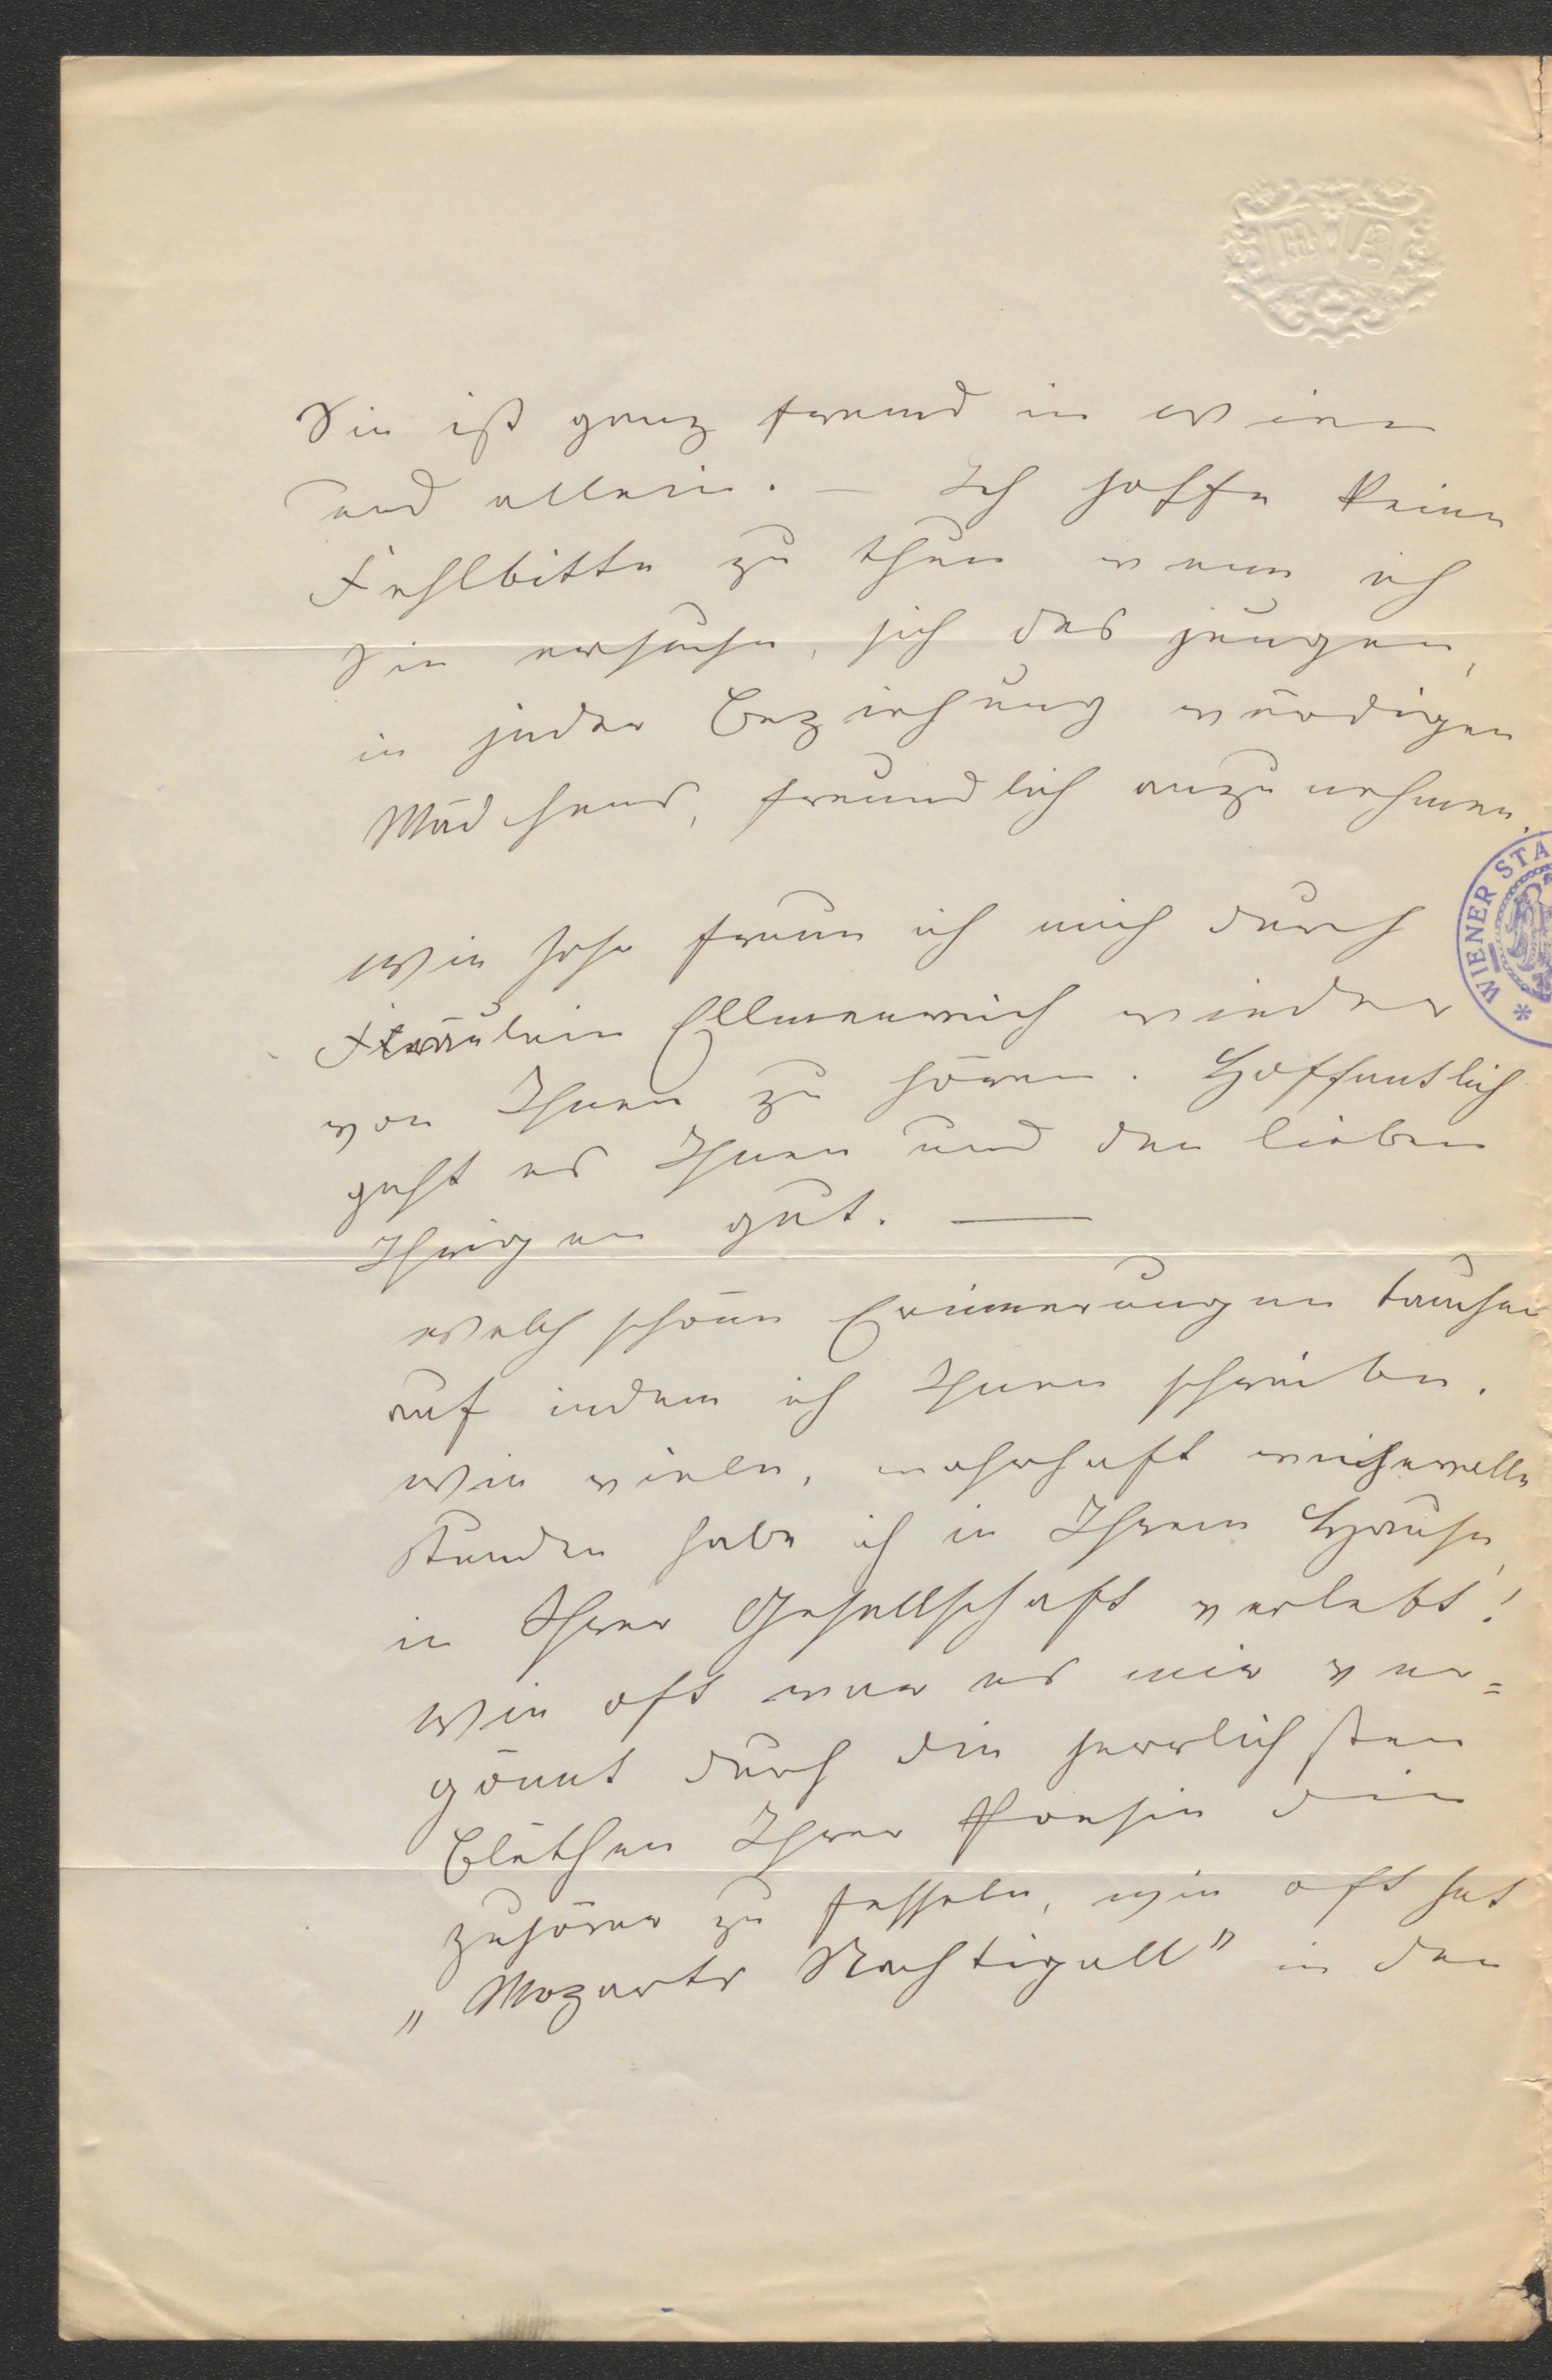 M A
Sie ist ganz fremd in Wien
und allein. — Ich hoffe keine
Fehlbitte zu thun wenn ich
Sie ersuche, sich des jungen,
in jeder Beziehung würdigen
Mädchens, freundlich anzunehmen.
Wie sehr freue ich mich durch
Fräulein Ellmenreich wieder
von Ihnen zu hören. Hoffentlich
geht es Ihnen und den lieben
Ihrigen gut. —
Welch schöne Erinnerungen tauchen
auf indem ich Ihnen schreibe.
Wie viele, wahrhaft weihevolle
Stunden habe ich in Ihrem Hause,
in Ihrer Gesellschaft verlebt!
Wie oft war es mir ver=
gönnt durch die herrlichsten
Blüthen Ihrer Poesie die
Zuhörer zu fesseln, wie oft hat
„Mozarts Nachtigall" in den
WIENER STA